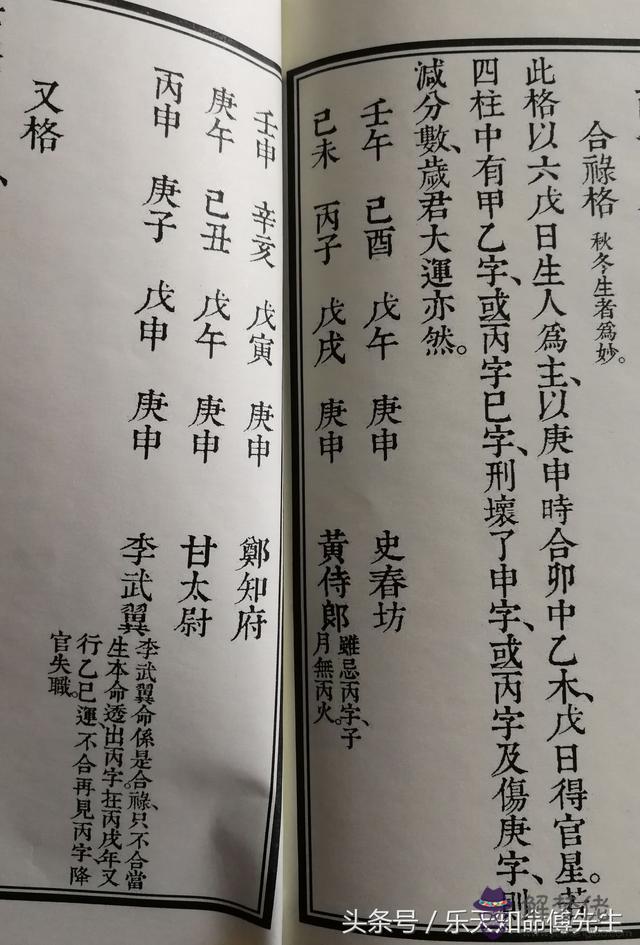 合祿格 秋冬生者爲妙。
此格以六戊日生人爲主、以庚申時合卯中乙木、戊日得官星。若
四柱中有甲乙字、或丙字巳字、刑壞了申字、或丙字及傷庚字、則
減分數、歲君大運亦然。
壬午 己酉 戊午 庚申 史春坊
己未 丙子 戊戌 庚申 黃侍郎 雖忌丙字、子
月無丙火。
壬申 辛亥 戊寅 庚申 鄭知府
庚午 己丑 戊午 庚申 甘太尉
丙申 庚子 戊申 庚申 李武翼 李武翼命係是合祿、只不合當
生本命透出丙字。在丙戌年又
行乙巳運、不合再見丙字、降
官失職。
又格
头条号 / 乐天知命傅先生